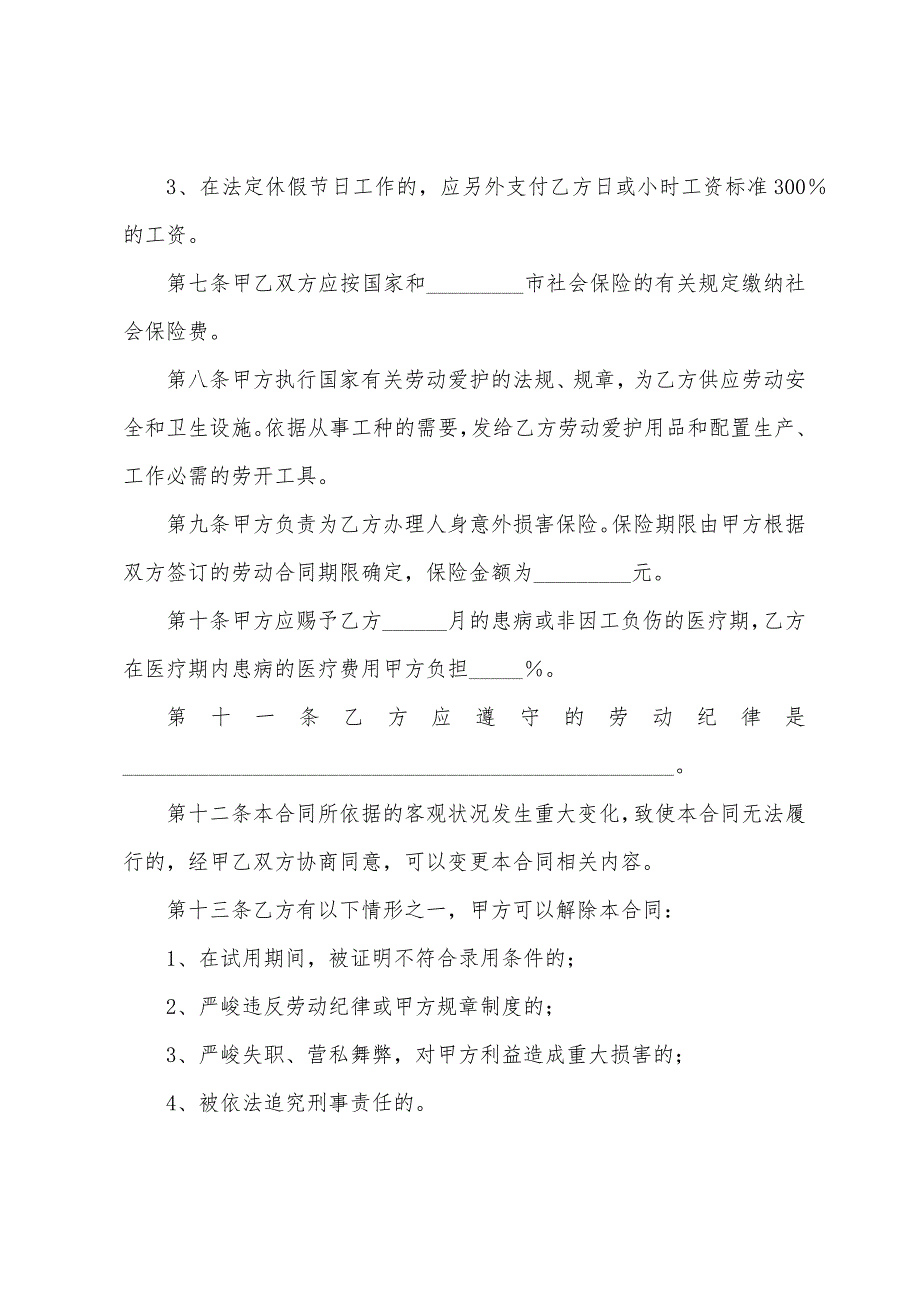 3、在法定休假节日工作的，应另外支付乙方日或小时工资标准300%
的工资。
第七条甲乙双方应按国家和_________市社会保险的有关规定缴纳社
会保险费。
第八条甲方执行国家有关劳动爱护的法规、规章，为乙方供应劳动安
全和卫生设施。依据从事工种的需要，发给乙方劳动爱护用品和配置生产、
工作必需的劳开工具。
第九条甲方负责为乙方办理人身意外损害保险。保险期限由甲方根据
双方签订的劳动合同期限确定，保险金额为_________元。
第十条甲方应赐予乙方______月的患病或非因工负伤的医疗期，乙方
在医疗期内患病的医疗费用甲方负担_____%。
第十一条乙方应遵守的劳动纪律是
___________________________________________________。
第十二条本合同所依据的客观状况发生重大变化，致使本合同无法履
行的，经甲乙双方协商同意，可以变更本合同相关内容。
第十三条乙方有以下情形之一，甲方可以解除本合同：
1、在试用期间，被证明不符合录用条件的；
2、严峻违反劳动纪律或甲方规章制度的；
3、严峻失职、营私舞弊，对甲方利益造成重大损害的；
4、被依法追究刑事责任的。